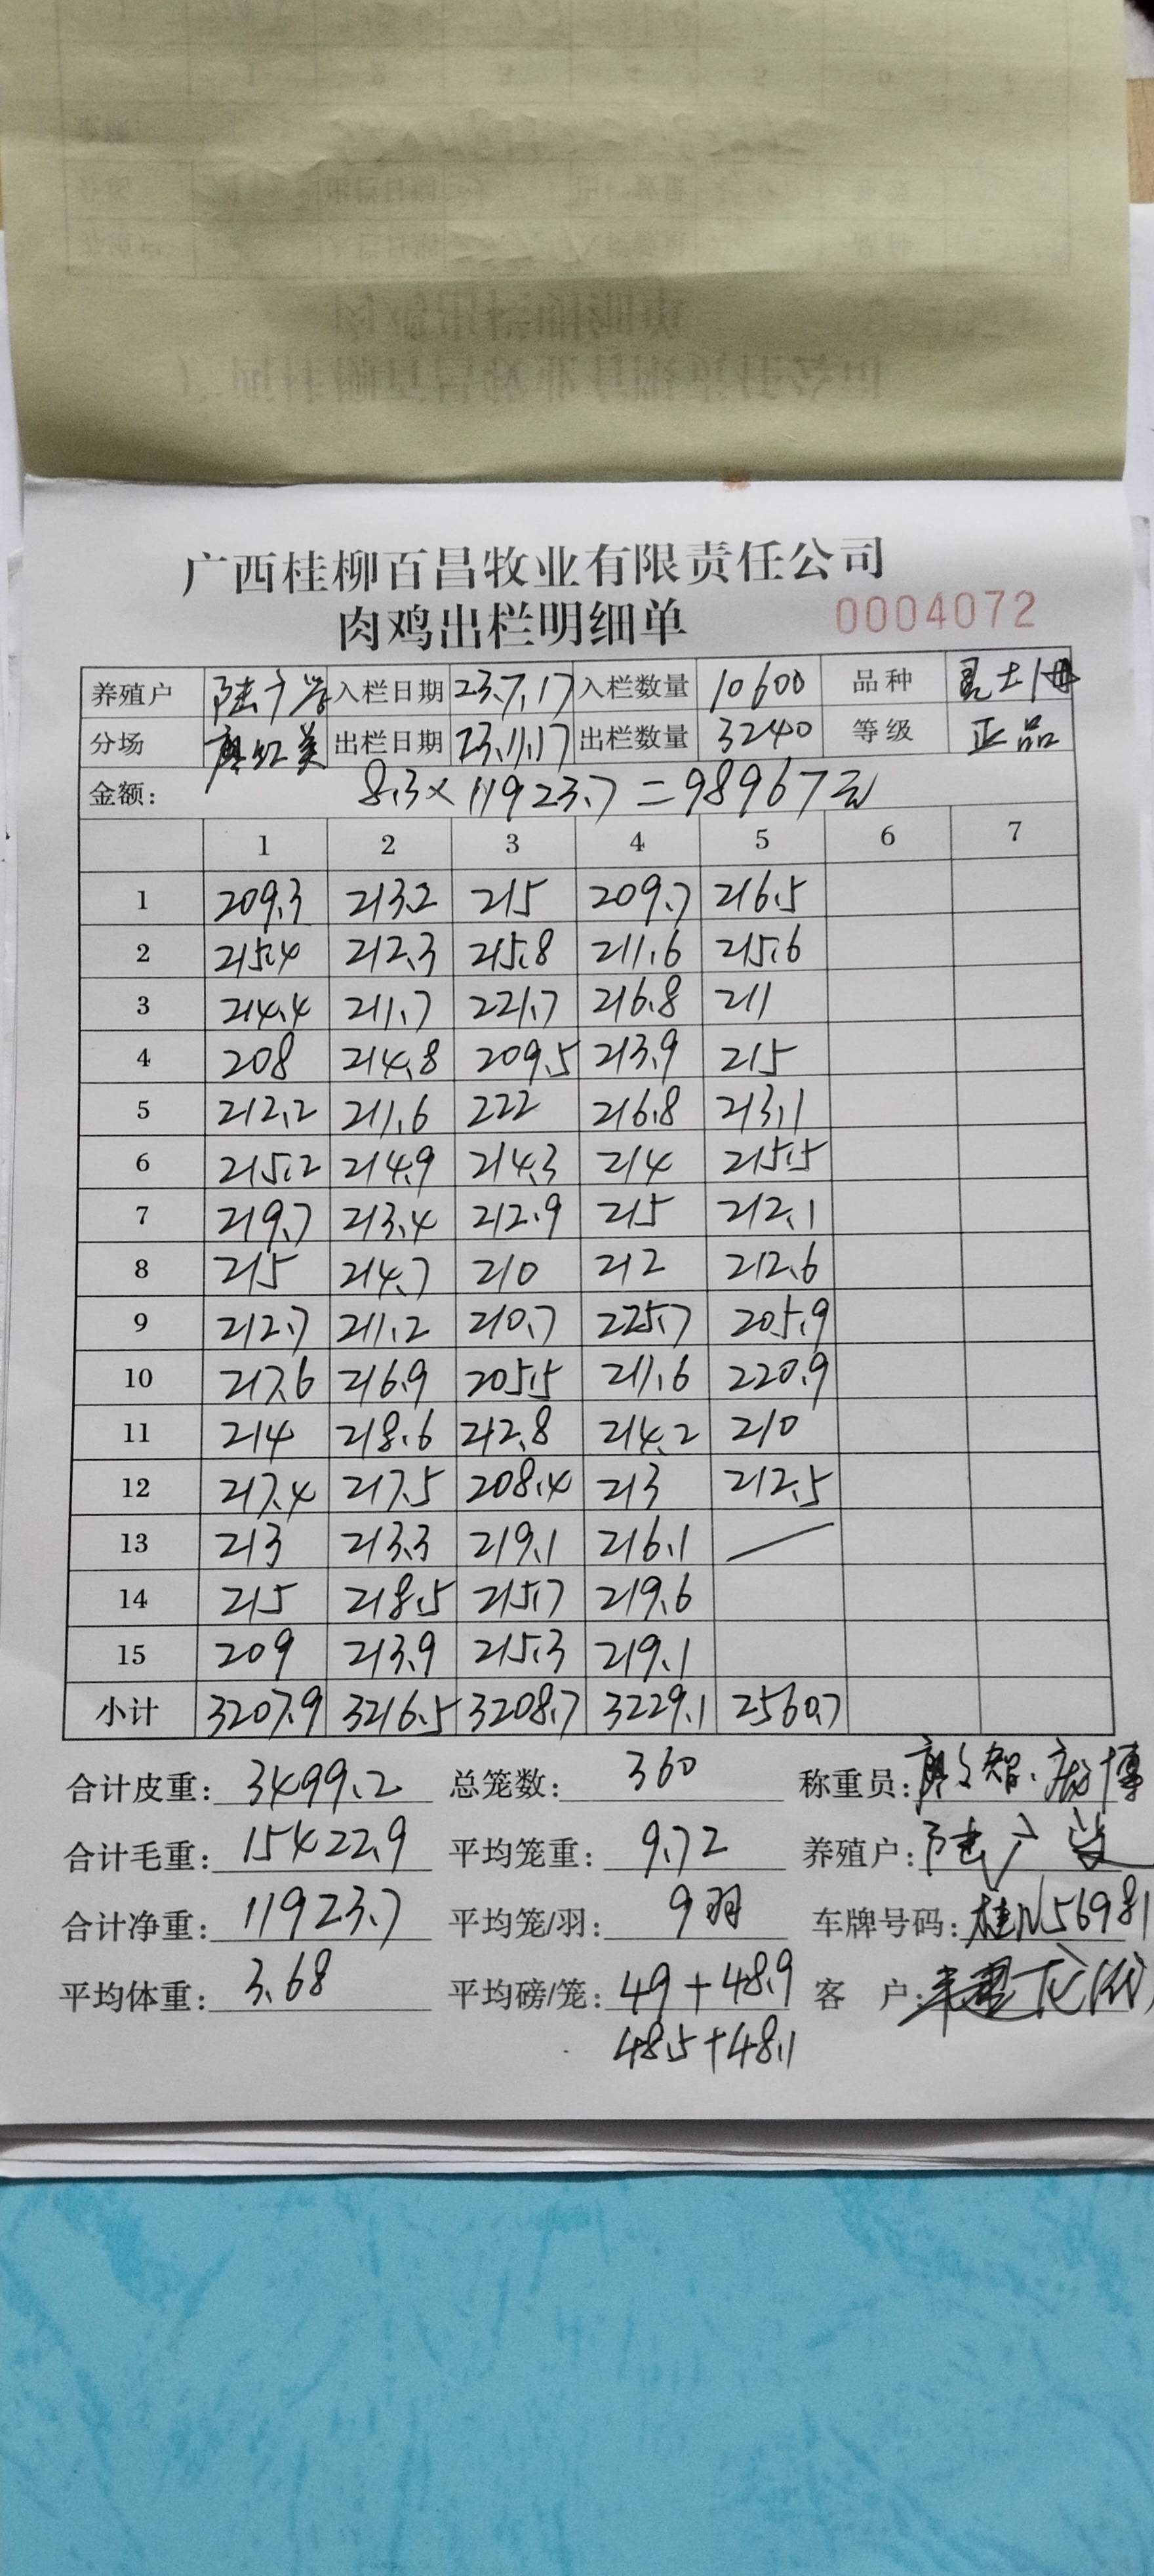 广西桂柳百昌牧业有限责任公司
肉鸡出栏明细单 0004072
养殖户 陆广学 入栏日期 23.7.17 入栏数量 10600 品种
分场 廖红美 出栏日期 23.11.17 出栏数量 3240 等级 正品
金额: 8.3×11923.7=98967元
1 2 3 4 5 6 7
1 209.3 213.2 215 209.7 216.5
2 215.4 212.3 215.8 211.6 215.6
3 214.4 211.7 221.7 216.8 211
4 208 214.8 209.5 213.9 215
5 212.2 211.6 222 216.8 213.1
6 215.2 214.9 214.3 214 215.5
7 219.7 213.4 212.9 215 212.1
8 215 214.7 210 212 212.6
9 212.7 211.2 210.7 225.7 205.9
10 217.6 216.9 205.5 211.6 220.9
11 214 218.6 212.8 214.2 210
12 217.4 217.5 208.4 213 212.5
13 213 213.3 219.1 216.1
14 215 218.5 215.7 219.6
15 209 213.9 215.3 219.1
小计 3207.9 3216.5 3208.7 3229.1 2560.7
合计皮重: 3499.2 总笼数: 360 称重员:
合计毛重: 15422.9 平均笼重: 9.72 养殖户:
合计净重: 11923.7 平均笼/羽: 9羽 车牌号码: 桂N56981
平均体重: 3.68 平均磅/笼: 49+48.9 客 户:
48.5+48.1